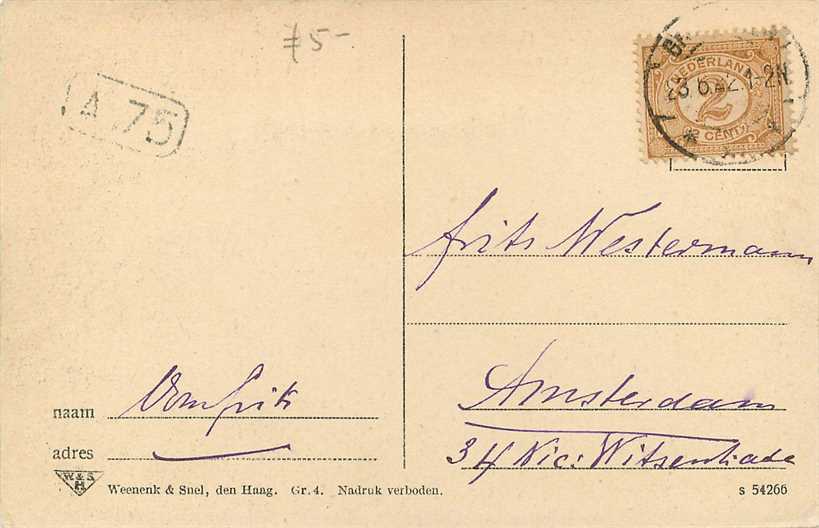 ≠5-
A 75
NEDERLAND
2
2 CENT 2
Frits Westermann
Amsterdam
34 Nic: Witsenkade
naam Oom Frits
adres
W & S
H
Weenenk & Snel, den Haag. Gr. 4. Nadruk verboden.
S 54266